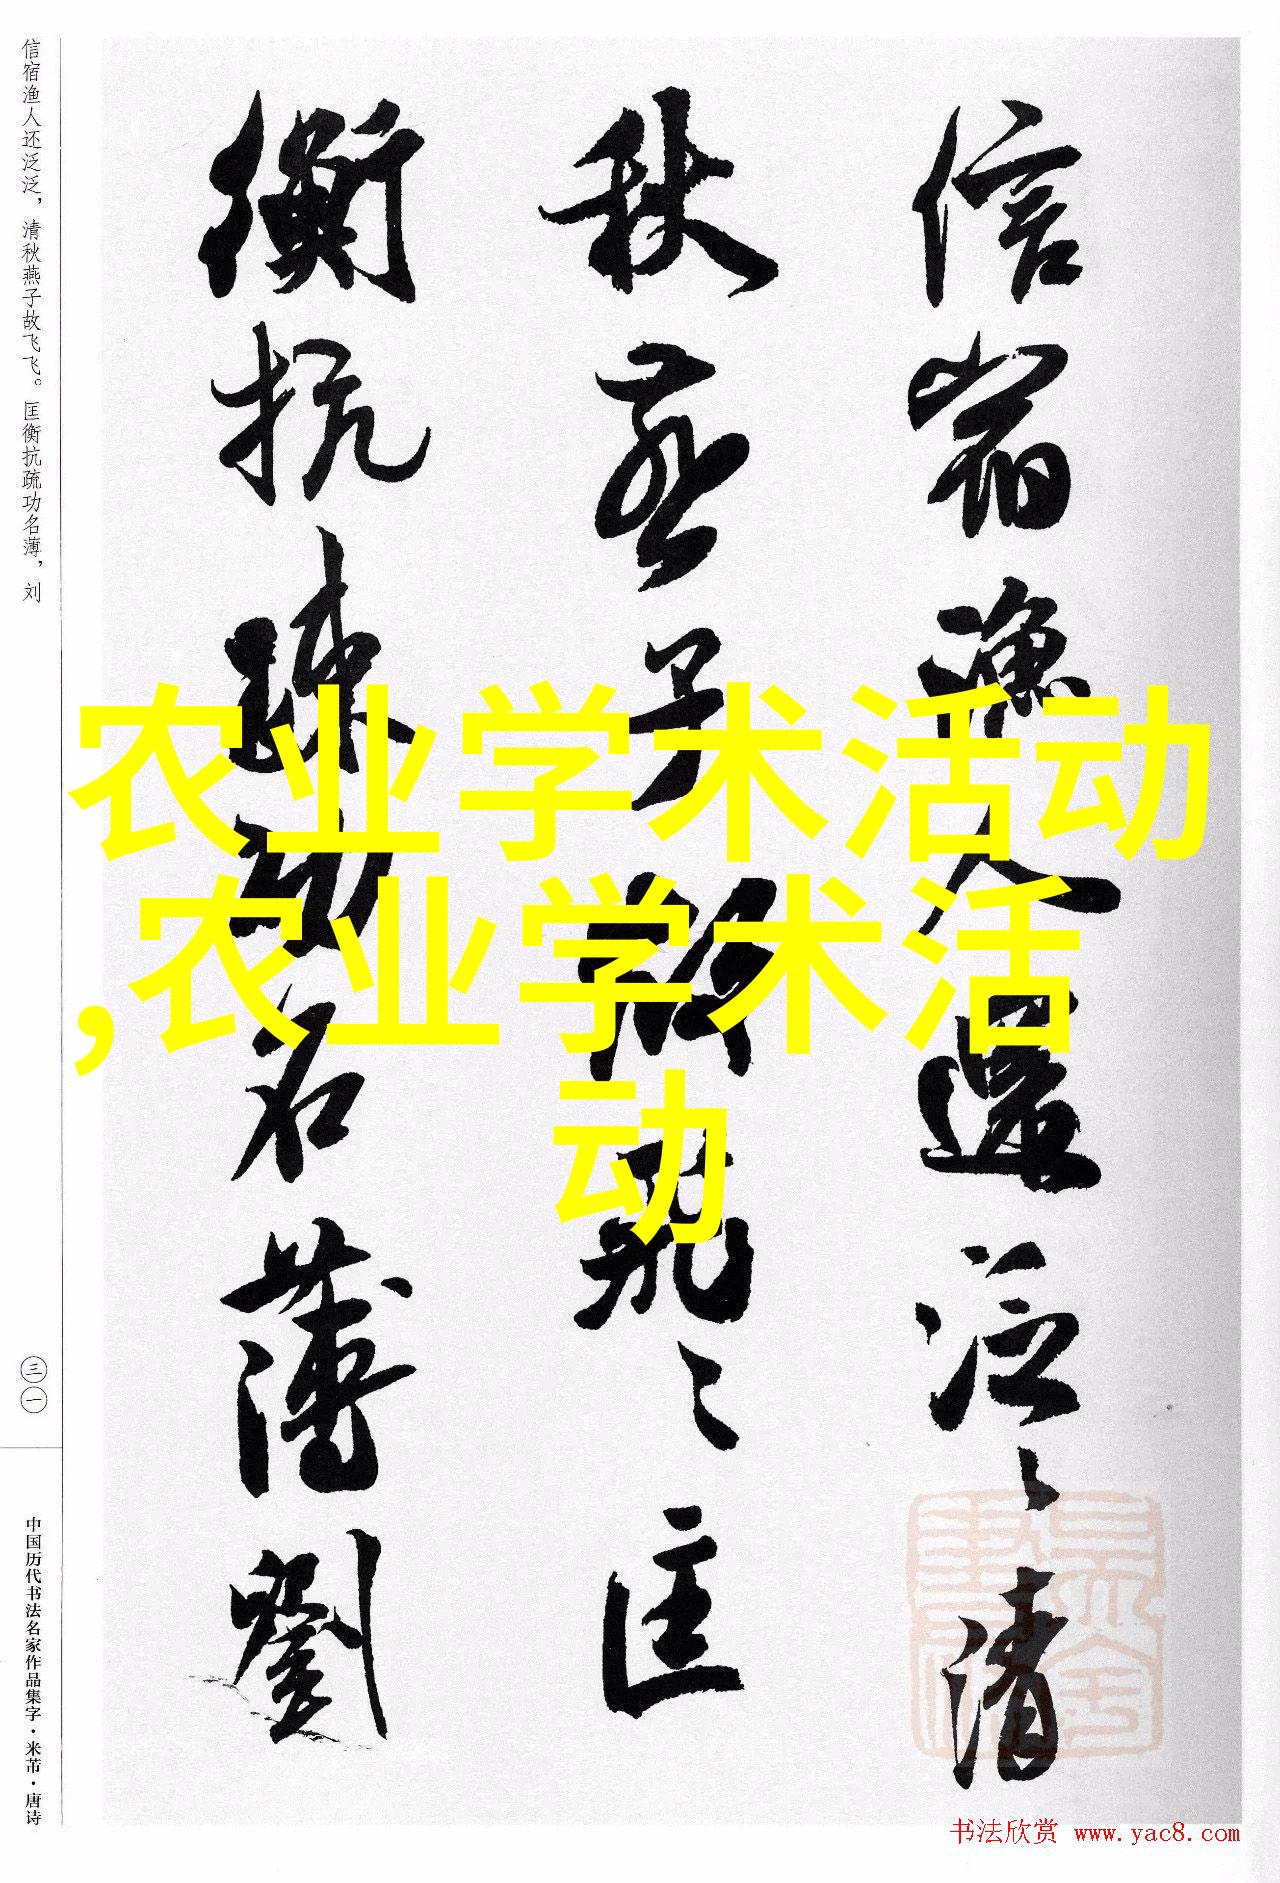 信宿渔人还泛泛，清秋燕子故飞飞。匡衡抗疏功名薄，刘
信宿漁人還泛泛清
秋燕子故飛飛匡
衡抗疏功名薄劉
农业学术活动
,农业学术活
动
三一
中国历代书法名家作品集字·米芾·唐诗
书法欣赏 www.yac8.com